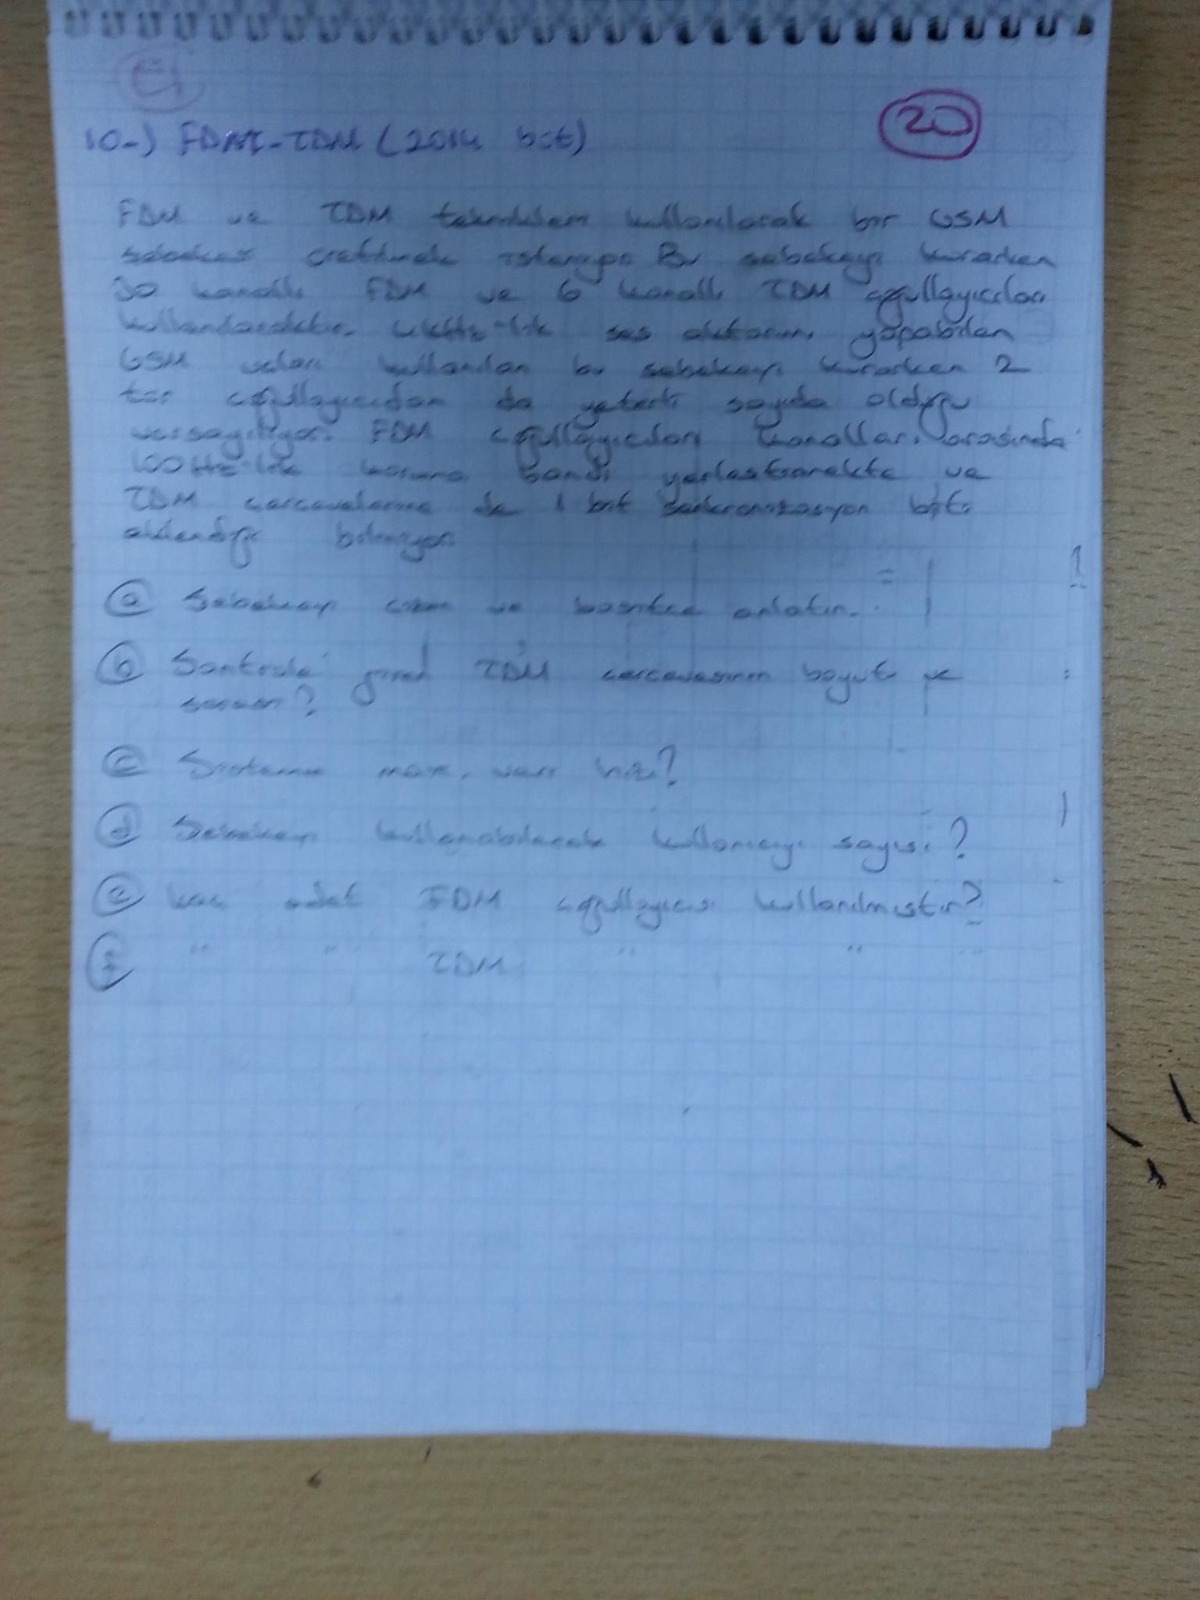 20
10-) FDM-TDM (2014 büt)
FDM ve TDM teknikleri kullanılarak bir GSM
şebekesi üretilmek isteniyor. Bu şebekeyi kurarken
30 kanallı FDM ve 6 kanallı TDM çoğullayıcıları
kullanılacaktır. 4kHz-lik ses aktarımı yapabilen
GSM kullanılan bu şebekeyi kurarken 2
tür çoğullayıcıdan da yeterli sayıda olduğu
varsayılıyor. FDM çoğullayıcıları kanalları arasında
100Hz-lik koruma bandı yerleştirmekte ve
TDM çerçevelerine de 1 bit senkronizasyon biti
eklendiği biliniyor.
a) Şebekeyi çizin ve basitçe anlatın.
b) Santrale giren TDM çerçevesinin boyutu ve
süresi?
c) Sistemin max. veri hızı?
d) Şebekeyi kullanabilecek kullanıcı sayısı?
e) Kaç adet FDM çoğullayıcısı kullanılmıştır?
f) " " TDM " " "